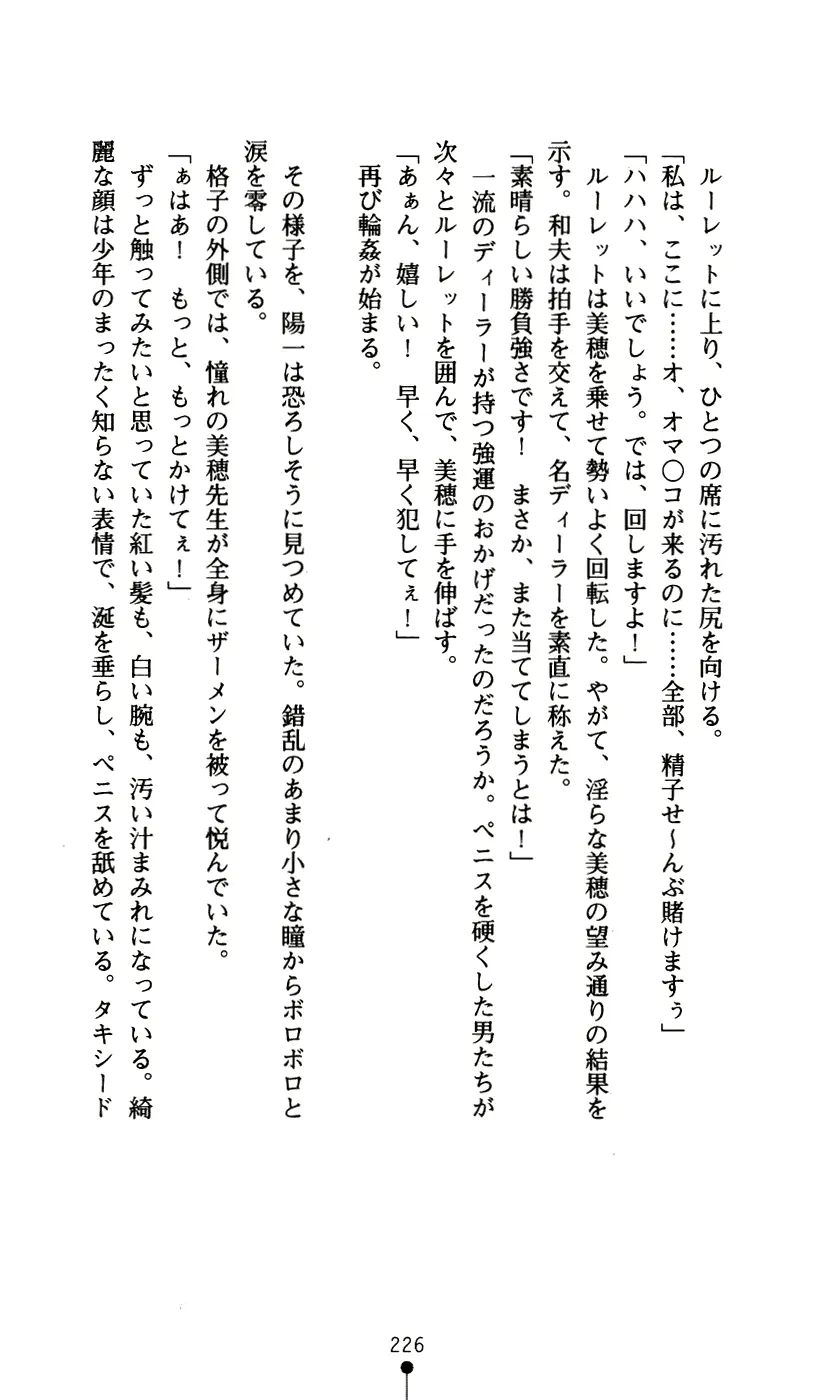 ルーレットに上り、ひとつの席に汚れた尻を向ける。
「私は、ここに……オ、オマ〇コが来るのに……全部、精子せ〜んぶ賭けますぅ」
「ハハハ、いいでしょう。では、回しますよ！」
ルーレットは美穂を乗せて勢いよく回転した。やがて、淫らな美穂の望み通りの結果を
示す。和夫は拍手を交えて、名ディーラーを素直に称えた。
「素晴らしい勝負強さです！　まさか、また当ててしまうとは！」
一流のディーラーが持つ強運のおかげだったのだろうか。ペニスを硬くした男たちが
次々とルーレットを囲んで、美穂に手を伸ばす。
「あぁん、嬉しい！　早く、早く犯してぇ！」
再び輪姦が始まる。
その様子を、陽一は恐ろしそうに見つめていた。錯乱のあまり小さな瞳からボロボロと
涙を零している。
格子の外側では、憧れの美穂先生が全身にザーメンを被って悦んでいた。
「ぁはあ！　もっと、もっとかけてぇ！」
ずっと触ってみたいと思っていた紅い髪も、白い腕も、汚い汁まみれになっている。綺
麗な顔は少年のまったく知らない表情で、涎を垂らし、ペニスを舐めている。タキシード
226